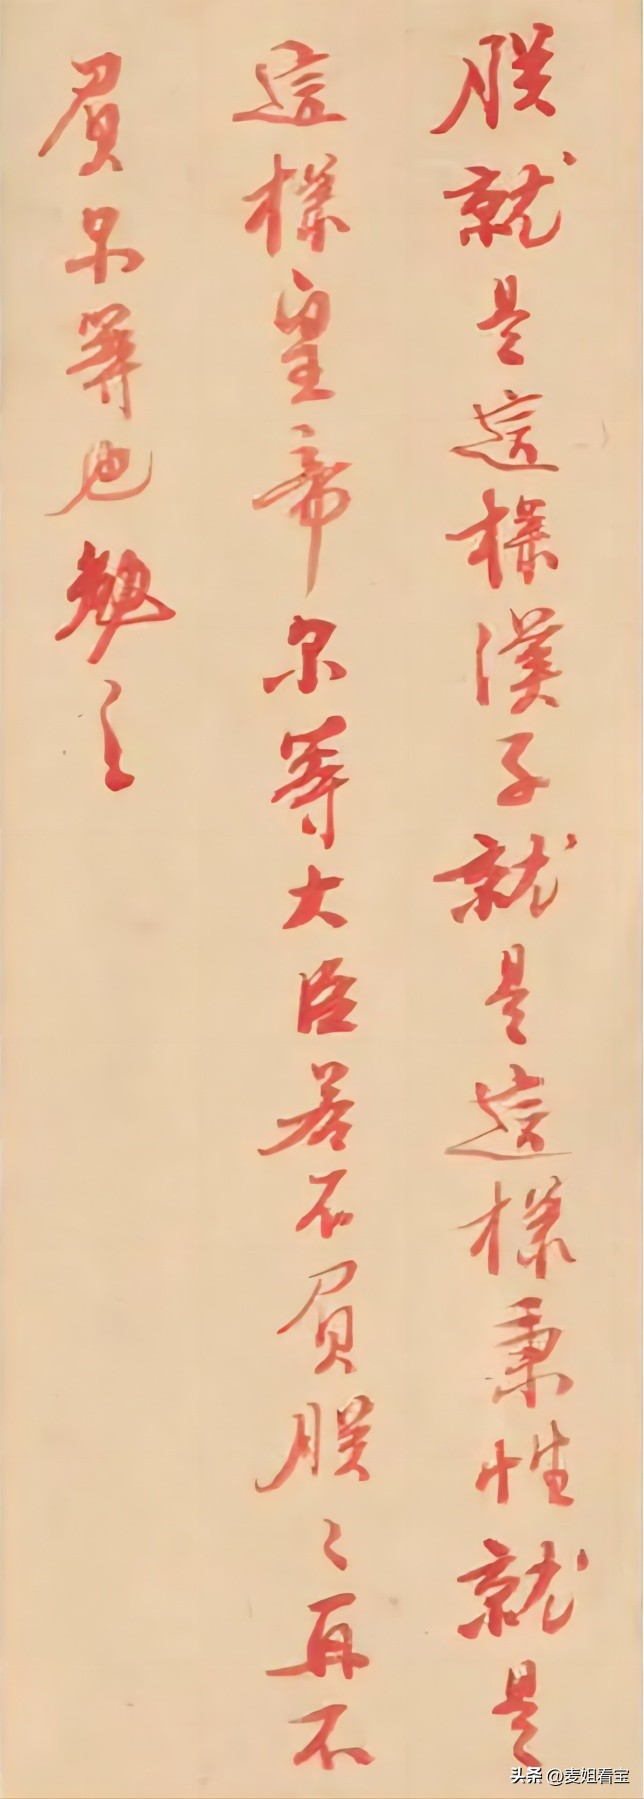 朕就是這樣漢子就是這樣秉性就是
這樣皇帝尔等大臣若不負朕〻再不
負尔等也勉之
头条 @麦姐看宝